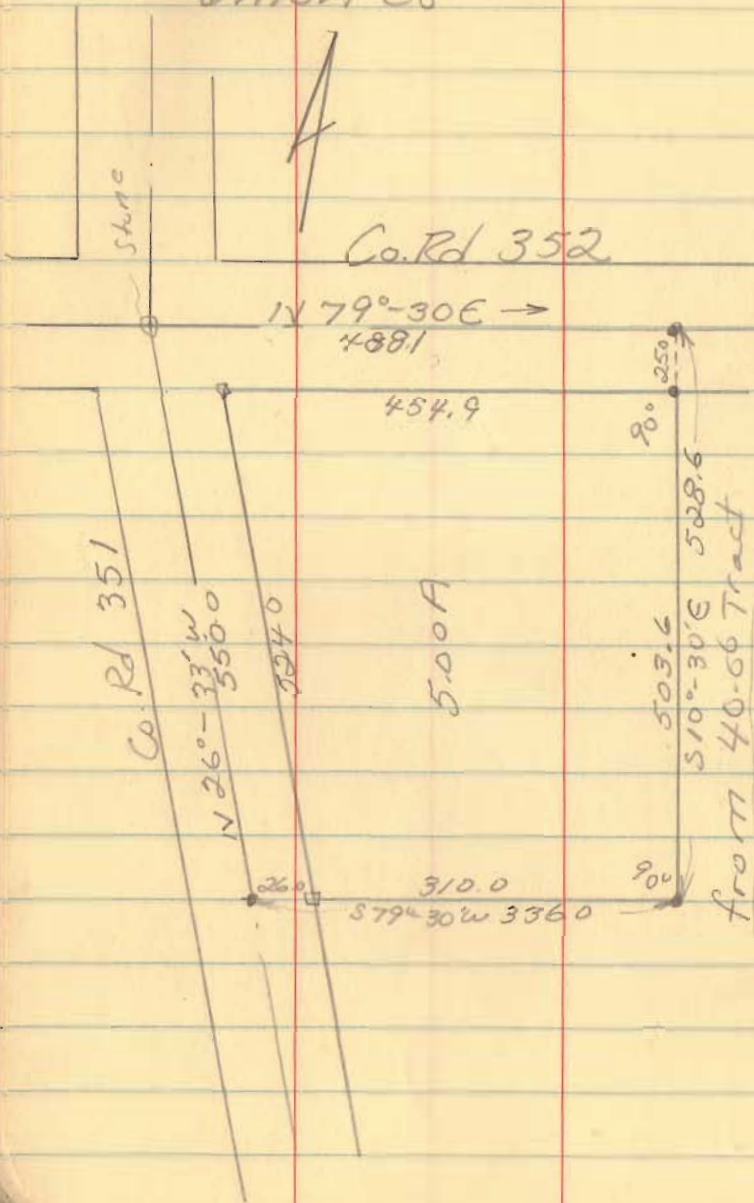 Union Co
Stone
Co. Rd 352
N 79°-30 E →
488.1
454.9
25.0
90°
Co. Rd 351
N 26°-33' W
550.0
524.0
5.00 A
503.6
S 10°-30' E 528.6
from 40.66 Tract
26.0
310.0
90°
S 79° 30' W 336.0